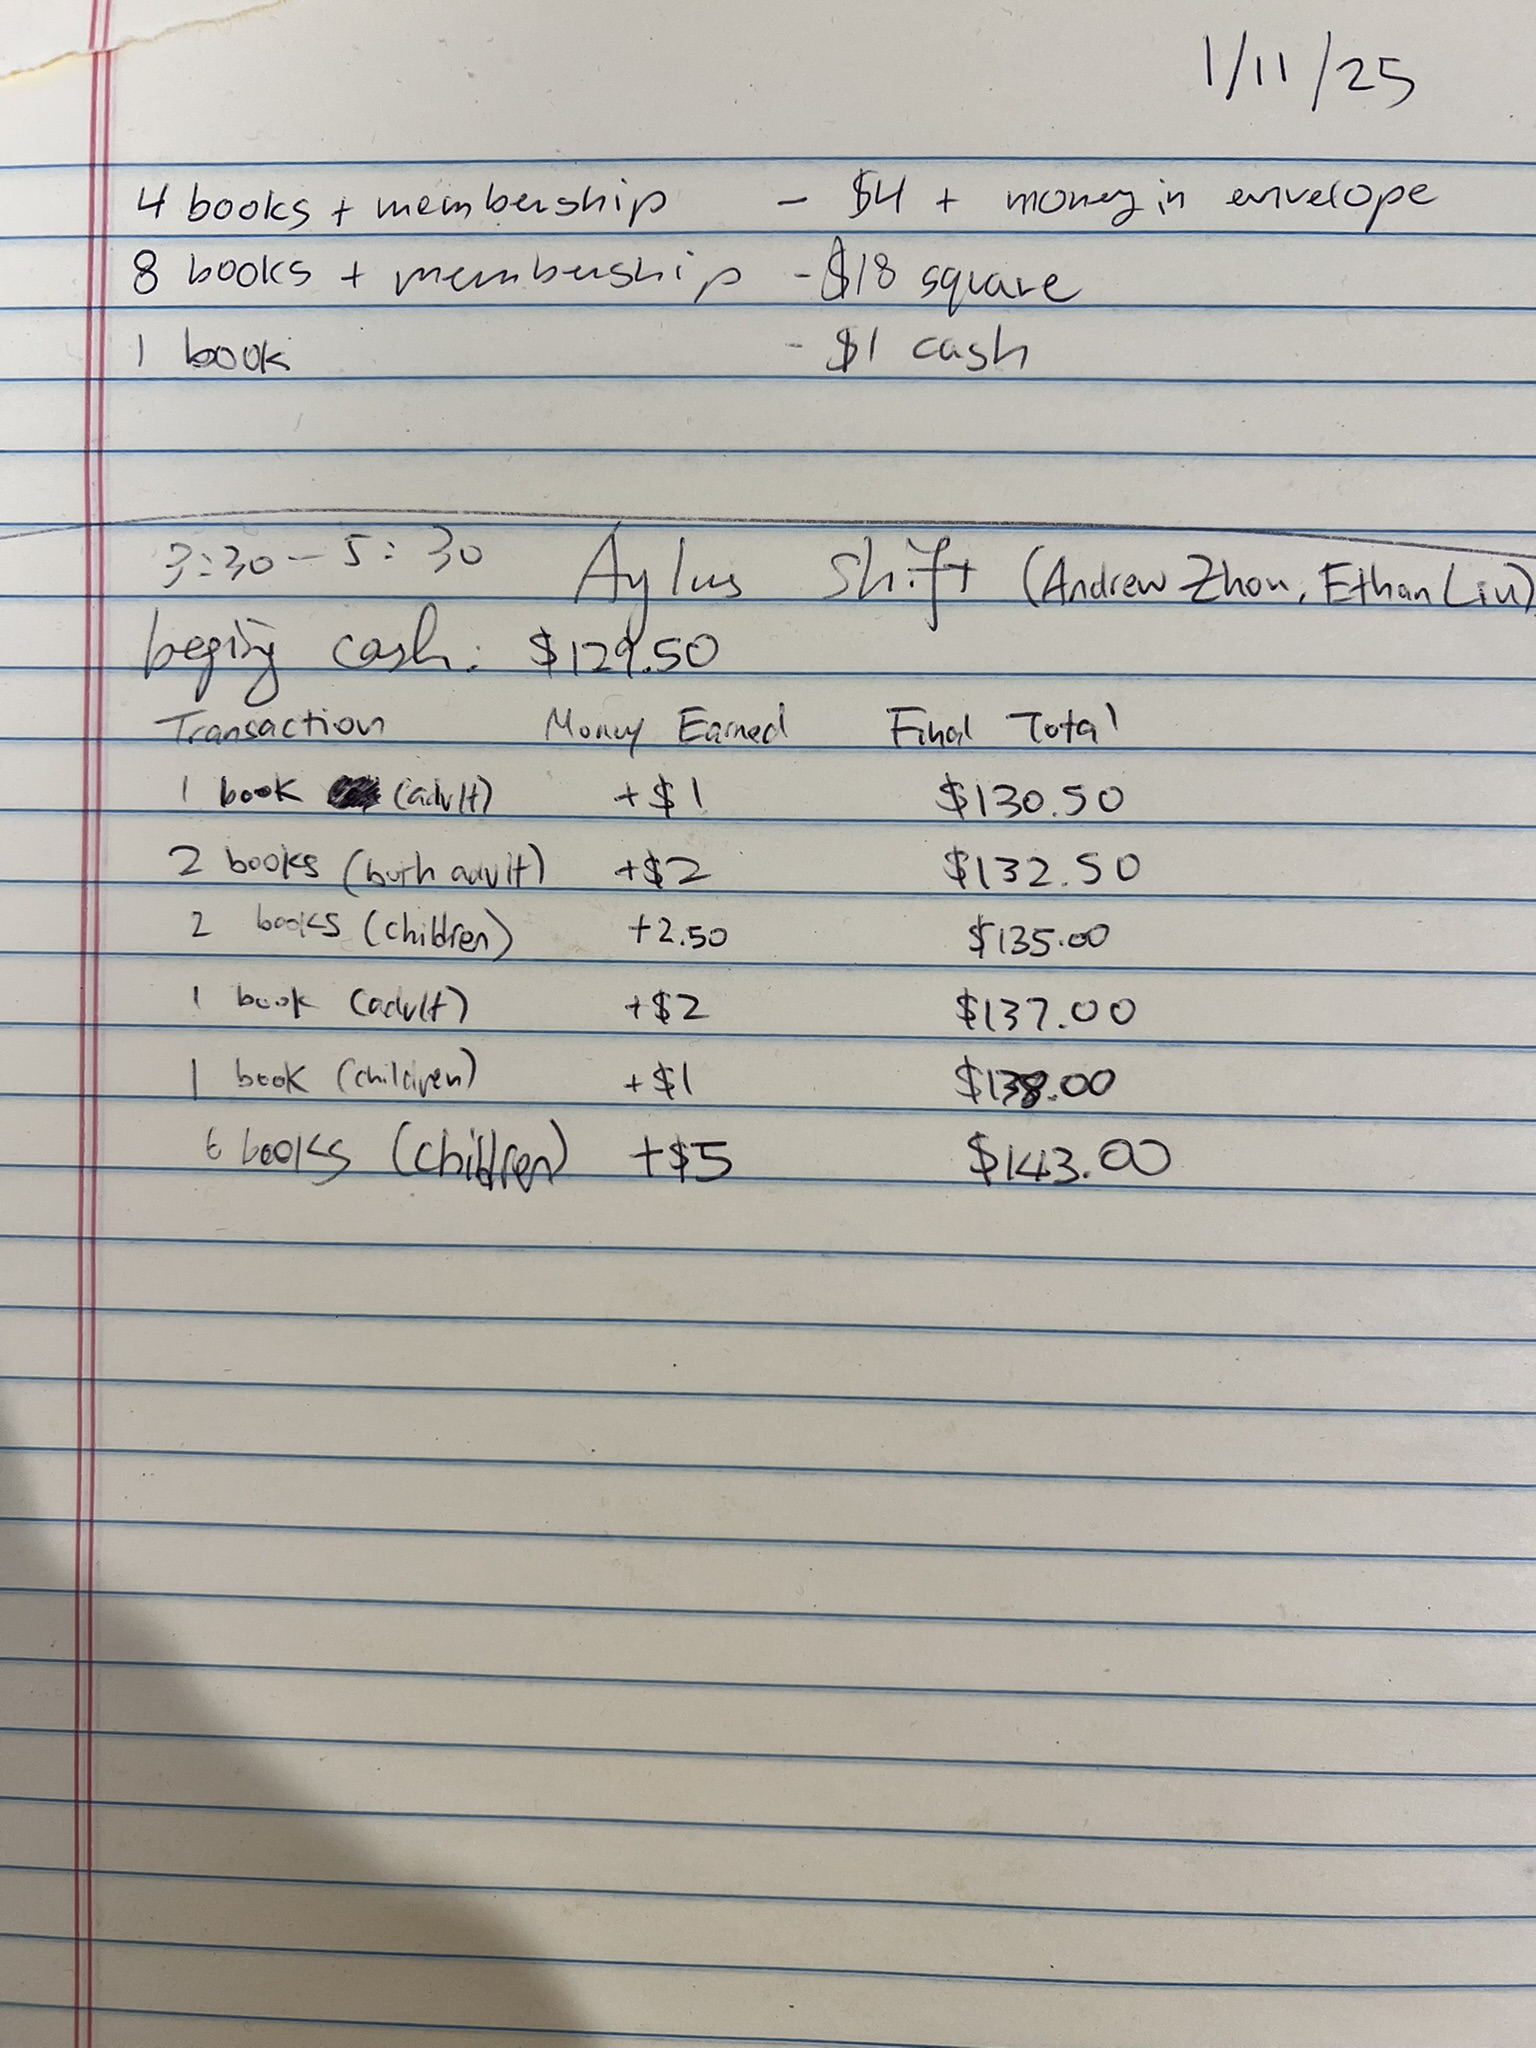 1/11/25
4 books + membership - $4 + money in envelope
8 books + membership - $18 square
1 book - $1 cash
3:30 - 5:30 Aylus shift (Andrew Zhou, Ethan Liu)
beging cash: $129.50
Transaction Money Earned Final Total
1 book (adult) +$1 $130.50
2 books (both adult) +$2 $132.50
2 books (children) +2.50 $135.00
1 book (adult) +$2 $137.00
1 book (children) +$1 $138.00
6 books (children) +$5 $143.00